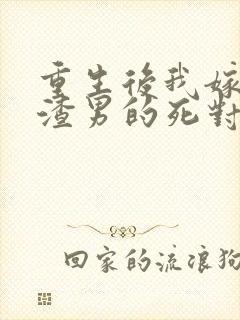 重生後我嫁
渣男的死對
回家的流浪狗